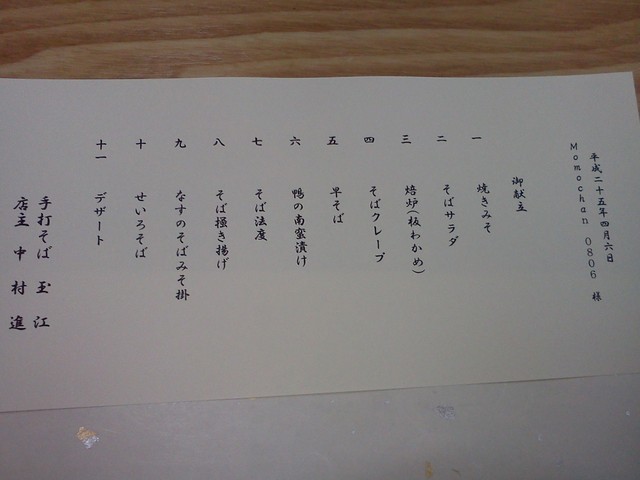 平成二十五年四月六日
Momochan 0806 様
御献立
一 焼きみそ
二 そばサラダ
三 焙炉(板わかめ)
四 そばクレープ
五 早そば
六 鴨の南蛮漬け
七 そば法度
八 そば掻き揚げ
九 なすのそばみそ掛
十 せいろそば
十一 デザート
手打そば 玉江
店主 中村進